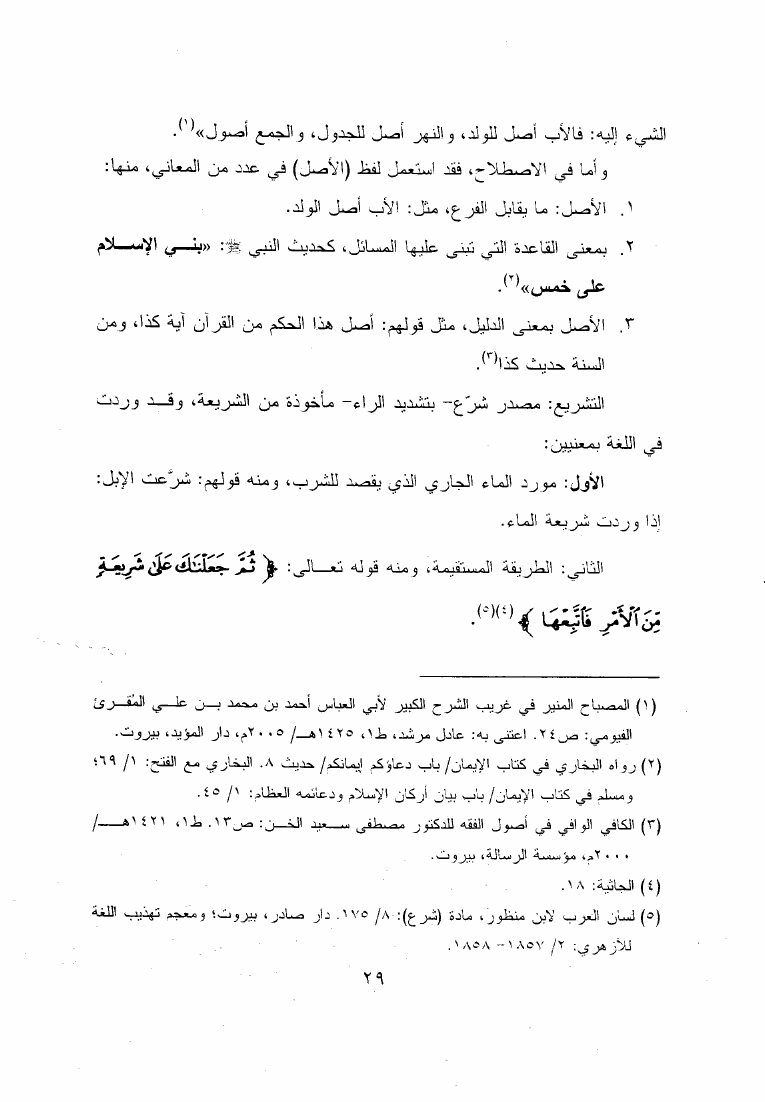 الشيء إليه: فالأب أصل للولد، والنهر أصل للجدول، والجمع أصول»(١).
وأما في الاصطلاح، فقد استعمل لفظ (الأصل) في عدد من المعاني، منها:
١. الأصل: ما يقابل الفرع، مثل: الأب أصل الولد.
٢. بمعنى القاعدة التي تبنى عليها المسائل، كحديث النبي ﷺ: «بني الإسلام
على خمس»(٢).
٣. الأصل بمعنى الدليل، مثل قولهم: أصل هذا الحكم من القرآن آية كذا، ومن
السنة حديث كذا(٣).
التشريع: مصدر شرّع- بتشديد الراء- مأخوذة من الشريعة، وقد وردت
في اللغة بمعنيين:
الأول: مورد الماء الجاري الذي يقصد للشرب، ومنه قولهم: شرَّعت الإبل:
إذا وردت شريعة الماء.
الثاني: الطريقة المستقيمة، ومنه قوله تعالى: ﴿ ثُمَّ جَعَلْنَاكَ عَلَىٰ شَرِيعَةٍ
مِّنَ ٱلْأَمْرِ فَٱتَّبِعْهَا ﴾(٤)(٥).
(١) المصباح المنير في غريب الشرح الكبير لأبي العباس أحمد بن محمد بن علي المُقرئ
الفيومي: ص٢٤. اعتنى به: عادل مرشد، ط١، ١٤٢٥هـ/ ٢٠٠٥م، دار المؤيد، بيروت.
(٢) رواه البخاري في كتاب الإيمان/ باب دعاؤكم إيمانكم/ حديث ٨. البخاري مع الفتح: ١/ ٦٩؛
ومسلم في كتاب الإيمان/ باب بيان أركان الإسلام ودعائمه العظام: ١/ ٤٥.
(٣) الكافي الوافي في أصول الفقه للدكتور مصطفى سعيد الخن: ص١٣. ط١، ١٤٢١هـ/
٢٠٠٠م، مؤسسة الرسالة، بيروت.
(٤) الجاثية: ١٨.
(٥) لسان العرب لابن منظور، مادة (شرع): ٨/ ١٧٥. دار صادر، بيروت؛ ومعجم تهذيب اللغة
للأزهري: ٢/ ١٨٥٧- ١٨٥٨.
٢٩